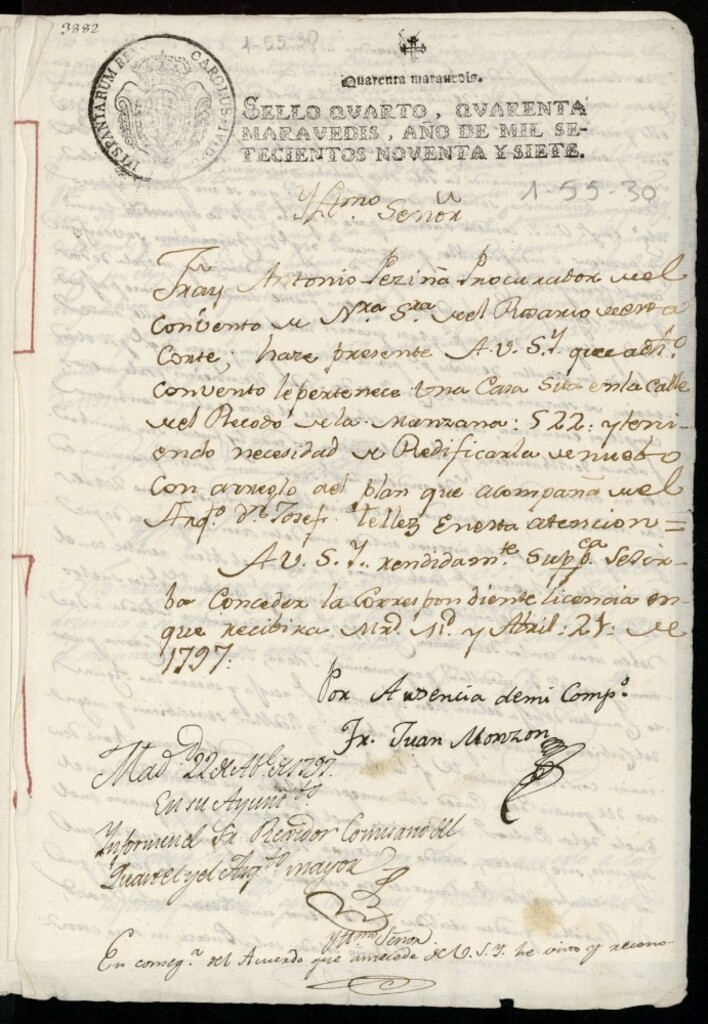 3882
1-55-30
HISPANIARUM REX CAROLUS IV D
Quarenta maravedis.
SELLO QVARTO, QVARENTA
MARAVEDIS, AÑO DE MIL SE-
TECIENTOS NOVENTA Y SIETE.
1-55-30
Yllmo. Señor
Fray Antonio Peziña Procurador del
convento de Nra Sra del Rosario de esta
Corte; haze presente A.V.S.Y. que a dho.
convento le pertenece una Casa Sita en la Calle
del Recodo de la Manzana: 522: y teni-
endo necesidad de Redificarla de nuebo
con arreglo al plan que acompaña del
Arqo. Dn Josef Tellez En esta atencion =
A V. S. Y. rendidamte. Suppca. Se sir-
ba Conceder la Correspondiente licencia en
que recibira Mrd. Md. y Abril: 21: de
1797:
Por Ausencia de mi Compo.
Fr. Juan Monzon
Madd. 22 de Abl. de 1797.
En su Ayuntto
Ynformen el Sr Rexidor Comisario del
Quartel y el Arqto mayor
Yllmo Señor
En conseqa. del Acuerdo que antecede de V.S.Y. he visto y recono-